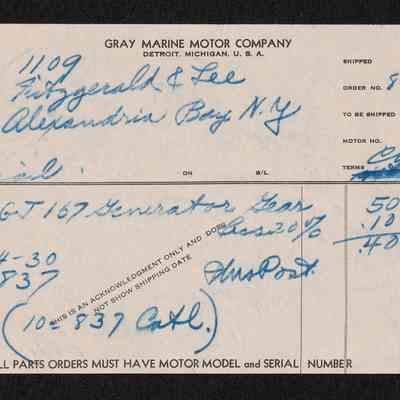 GRAY MARINE MOTOR COMPANY
DETROIT, MICHIGAN, U. S. A.
1109
Fitzgerald & Lee
Alexandria Bay N.Y
SHIPPED
ORDER NO. 8
TO BE SHIPPED
MOTOR NO.
TERMS
ON
B/L
GJ 167 Generator Gear 50
Less 20% .10
.40
4-30
837
THIS IS AN ACKNOWLEDGMENT ONLY AND DOES
NOT SHOW SHIPPING DATE
Post.
(10= 837 Catl.)
LL PARTS ORDERS MUST HAVE MOTOR MODEL and SERIAL NUMBER